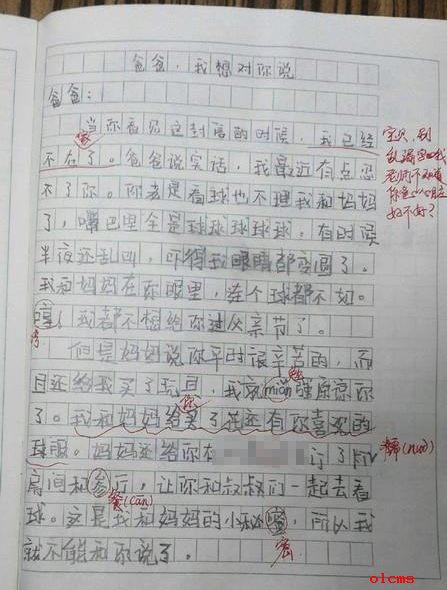 爸爸,我想对你说
爸爸:
当你看见这封信的时候,我已经
不在了。爸爸说实话,我最近有点忍
不了你。你老是看球也不理我和妈妈
了,嘴巴里全是球球球球球,有时候
半夜还乱叫,吓得我眼睛都变圆了。
我和妈妈在你眼里,连个球都不如。
哼!我都不想给你过父亲节了。
但是妈妈说你平时很辛苦的,而
且还给我买了玩具,我就mian强原谅你
勉
了。我和妈妈给买了花还有你喜欢的
你
球服。妈妈还给你在 订了
房间和 行,让你和叔叔们一起去看
餐(can)
球。这是我和妈妈的小秘 ,所以我
密
就不能和你说了。
宝贝,别
olcms